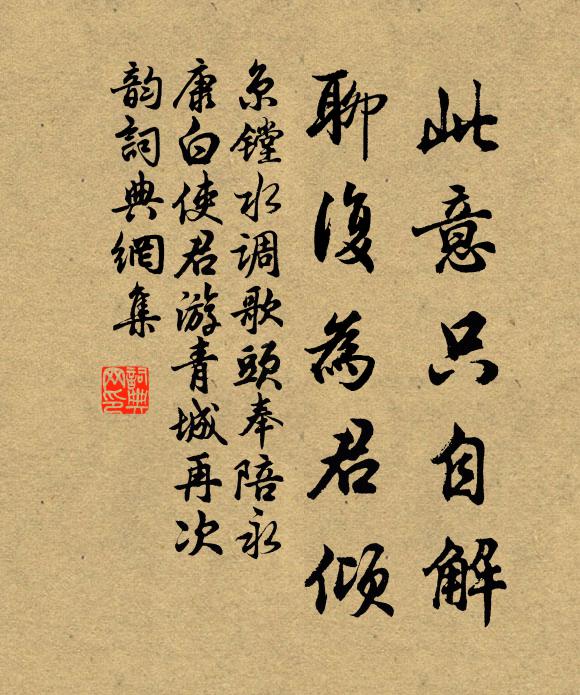 此意只自解
聊復為君傾
京鏜水调歌頭奉陪永
康白使君游青城再次
韵詞典網集
詞典
网印